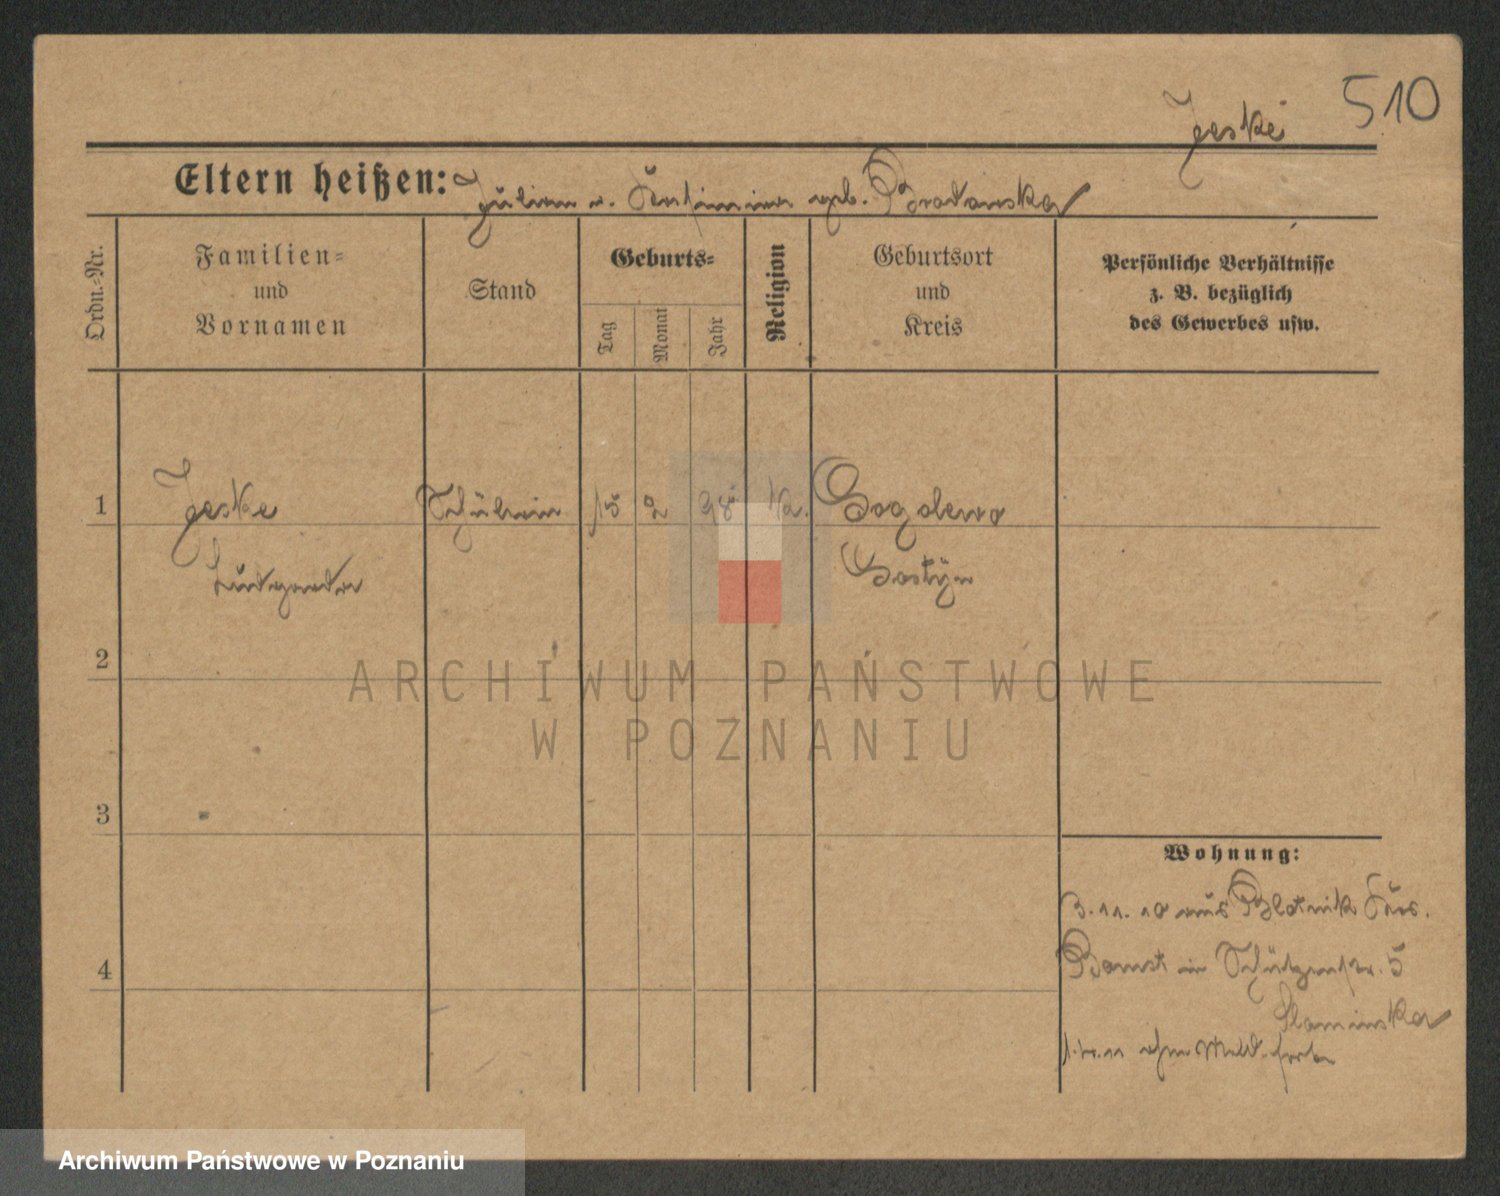 510
Jeske
Eltern heißen: Julian u. geb. Brodowska
Ordn.-Nr.
Familien-
und
Vornamen
Stand
Geburts-
Tag
Monat
Jahr
Religion
Geburtsort
und
Kreis
Persönliche Verhältnisse
z. B. bezüglich
des Gewerbes usw.
1 Jeske Schülerin 15 2 98 K. Gogolewo
Ludgarda Gostyn
2
3
4
Wohnung:
3.11.10 aus Blotnik Krs.
Bomst in Schützenstr. 5
Slaminska
1.4.11 ohne Meld. fort
ARCHIWUM PAŃSTWOWE
W POZNANIU
Archiwum Państwowe w Poznaniu